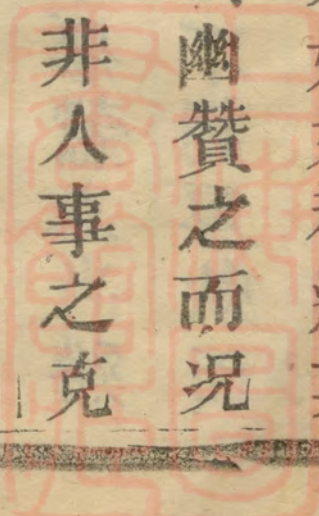 幽贊之而況
非人事之克